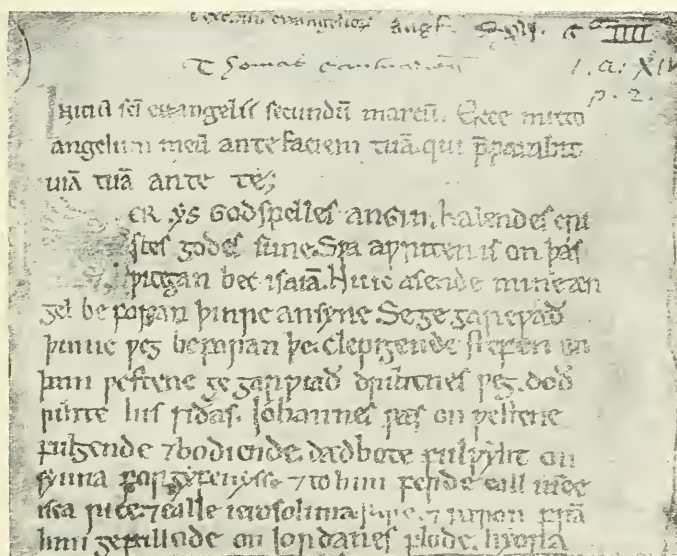 evangelior angl.
Thomas cantuarien
p. 2.
sci euangelii secundū marcū. Ecce mitto
angelum meū ante faciem tuā. qui p̄parabit
uiā tuā ante te;
ER ẏs GODSPELLES ANGIN. halendes cri
stes godes sune. Sƿa aƿriten is on þas
ƿitegan bec isaiā. Nu ic asende mine æn
gel beforan þinre ansyne. Se gegarepað
þinne ƿeg beforan þe. Clepigende stefen on
þam ƿestene gegarƿiað drihtnes ƿeg. doð
rihte his siðas. Iohannes ƿas on ƿestene
fulgende ⁊ bodiende. dadbote fulƿyht on
synna forgyfenysse ⁊ to him ferde eall
⁊ ealle ierosolima
him gefullode on iordanes flode.